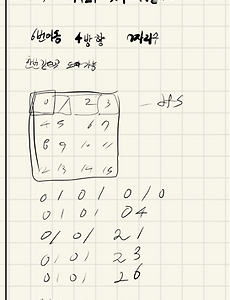 6번이동 4방향 7자리수
0 1 2 3 - dfs
4 5 6 7
8 9 10 11
12 13 14 15
0 1 0 1 0 1 0
0 1 0 1 0 4
0 1 0 1 2 1
0 1 0 1 2 3
0 1 0 1 2 6